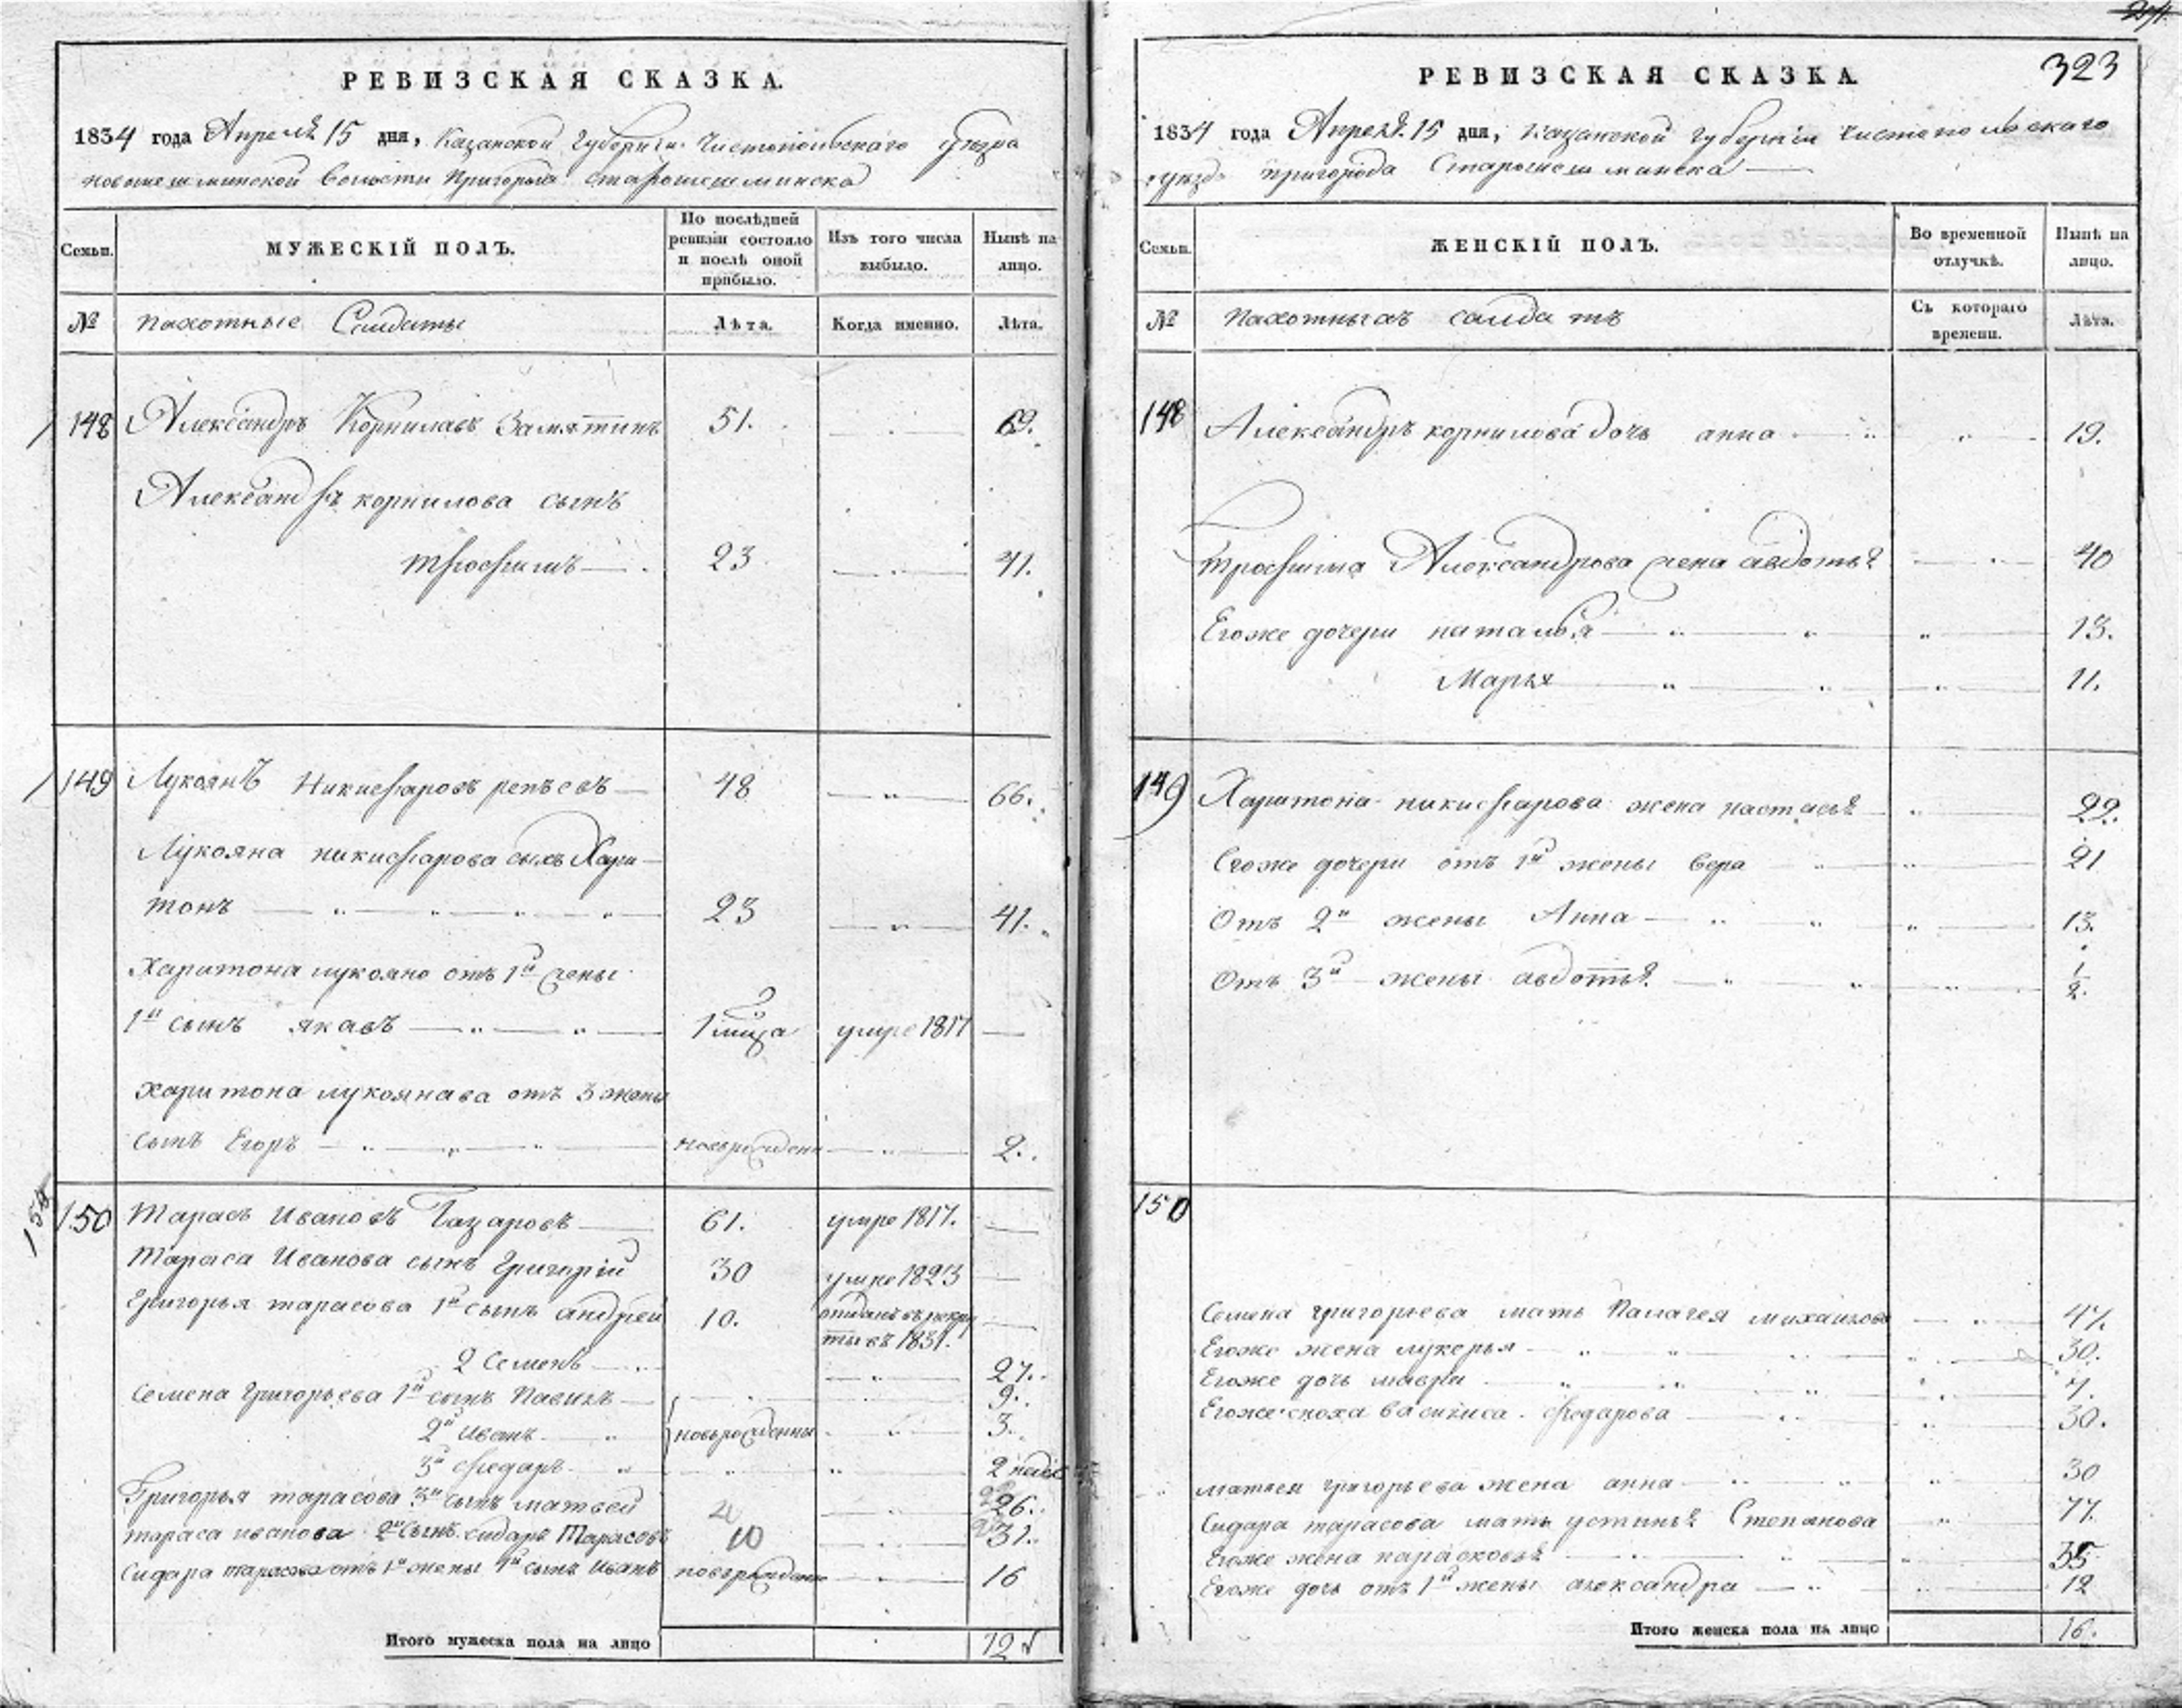 РЕВИЗСКАЯ СКАЗКА.
1834 года Апреля 15 дня, Казанской Губернии Чистопольскаго уезда
новошешминской волости Пригорода Старошешминска
Семьи.
МУЖЕСКІЙ ПОЛЪ.
По послѣдней ревизіи состояло и послѣ оной прибыло.
Изъ того числа выбыло.
Нынѣ на лицо.
№ пахотные Солдаты Лѣта. Когда именно. Лѣта.
148 Александръ Корнилавъ Замятинъ 51. 69.
Александръ корнилова сынъ
трофимъ 23 41.
149 Лукоянъ Никифаровъ репьевъ 48 66.
Лукояна никифарова сынъ Хари-
тонъ 23 41.
Харитона лукояно отъ 1й жены
1й сынъ якавъ 1 мца умре 1817
харитона лукоянава отъ 3 жены
сынъ Егоръ новорожденъ 2.
150 Тарасъ Ивановъ Назаровъ 61. умре 1817.
Тараса Иванова сынъ Григорій 30 умре 1823
Григорья тарасова 1й сынъ андрей 10. отданъ въ рекру
ты въ 1831.
2 Семенъ 27.
Семена Григорьева 1й сынъ Павилъ 9.
2й Иванъ новорожденны 3.
3й федаръ 2 недел
Григорья тарасова 3й сынъ матвей 26.
тараса иванова 2й сынъ сидаръ Тарасовъ 10 31.
Сидара тарасова отъ 1й жены 1й сынъ Иванъ новорожденъ 16
Итого мужеска пола на лицо 12
323
РЕВИЗСКАЯ СКАЗКА.
1834 года Апреля 15 дня, Казанской губерніи Чистопольскаго
уезда пригорода Старошешминска
Семьи.
ЖЕНСКІЙ ПОЛЪ.
Во временной отлучкѣ.
Нынѣ на лицо.
№ Пахотныхъ солдатъ Съ котораго времени. Лѣта.
148 Александръ корнилова дочь анна 19.
трофима Александрова жена авдотья 40
Егоже дочери наталья 13.
Марья 11.
149 Харитона никифарова жена настасья 22.
Егоже дочери отъ 1й жены вера 21
Отъ 2й жены Анна 13.
Отъ 3й жены авдотья 1/2.
150
Семена григорьева мать Палагея михаилова 47.
Егоже жена лукерья 30.
Егоже дочь мавра
Егоже сноха василиса федарова 30.
матвея григорьева жена анна 30
Сидара тарасова мать устинья Степанова 77.
Егоже жена парасковья 35
Егоже дочь отъ 1й жены александра 12
Итого женска пола на лицо 16.